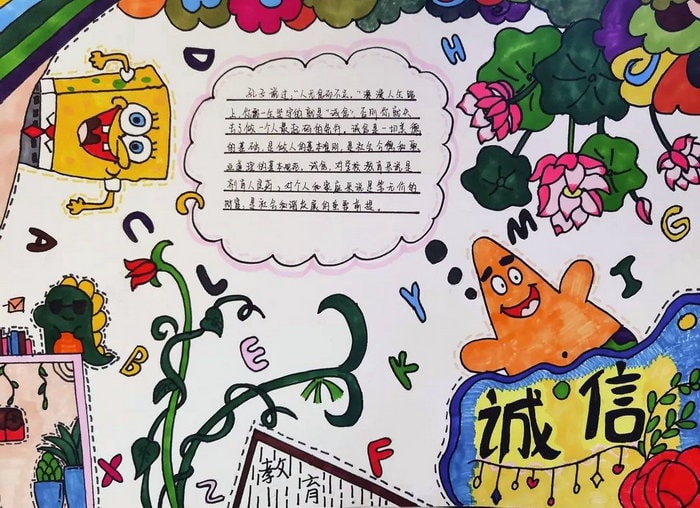 D
H
孔子:"人无信而不立。"漫漫人生路
上,你需一生坚守的就是"诚信",否则你就失
去了做一个人最起码的条件。诚信是一切美德
的基础,是做人的基本准则,是社会公德和职
业道德的基本规范。诚信,对学校教育来说是
育人良药,对个人和家庭来说是笔无价的
财富,是社会和谐发展的重要前提。
C
A
C
L
M
G
I
Y
B
E
K
诚信
F
X
Z
教育